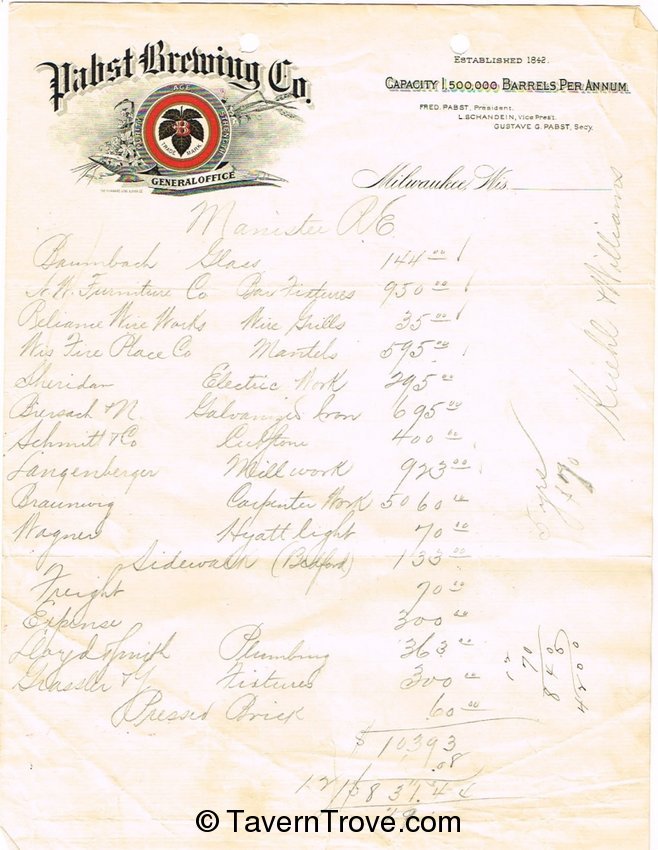 Pabst Brewing Co.
GENERAL OFFICE
TRADE MARK
B
ESTABLISHED 1842.
CAPACITY 1,500,000 BARRELS PER ANNUM.
FRED. PABST, President.
L. SCHANDEIN, Vice Prest.
GUSTAVE G. PABST, Secy.
Milwaukee, Wis.
Manistee R E
Baumbach Glass 144 00
N.W. Furniture Co Bar Fixtures 950 00
Reliance Wire Works Wire Grills 35 00
Wis Fire Place Co Mantels 595 00
Sheridan Electric Work 295 00
Biersach & N. Galvanized Iron 695 00
Schmitt & Co Cut Stone 400 00
Langenberger Mill work 923 00
Braunwig Carpenter Work 5060 00
Wagner Hyatt Light 70 00
Sidewalk (Bedford) 133 00
Freight 70 00
Expense 300 00
Lloyd & Smith Plumbing 363 00
Grassler & G Fixtures 300 00
Pressed Brick 60 00
$ 10393
.08
12 $ 831.44
Kuehl & Williams
70
840
4200
© TavernTrove.com